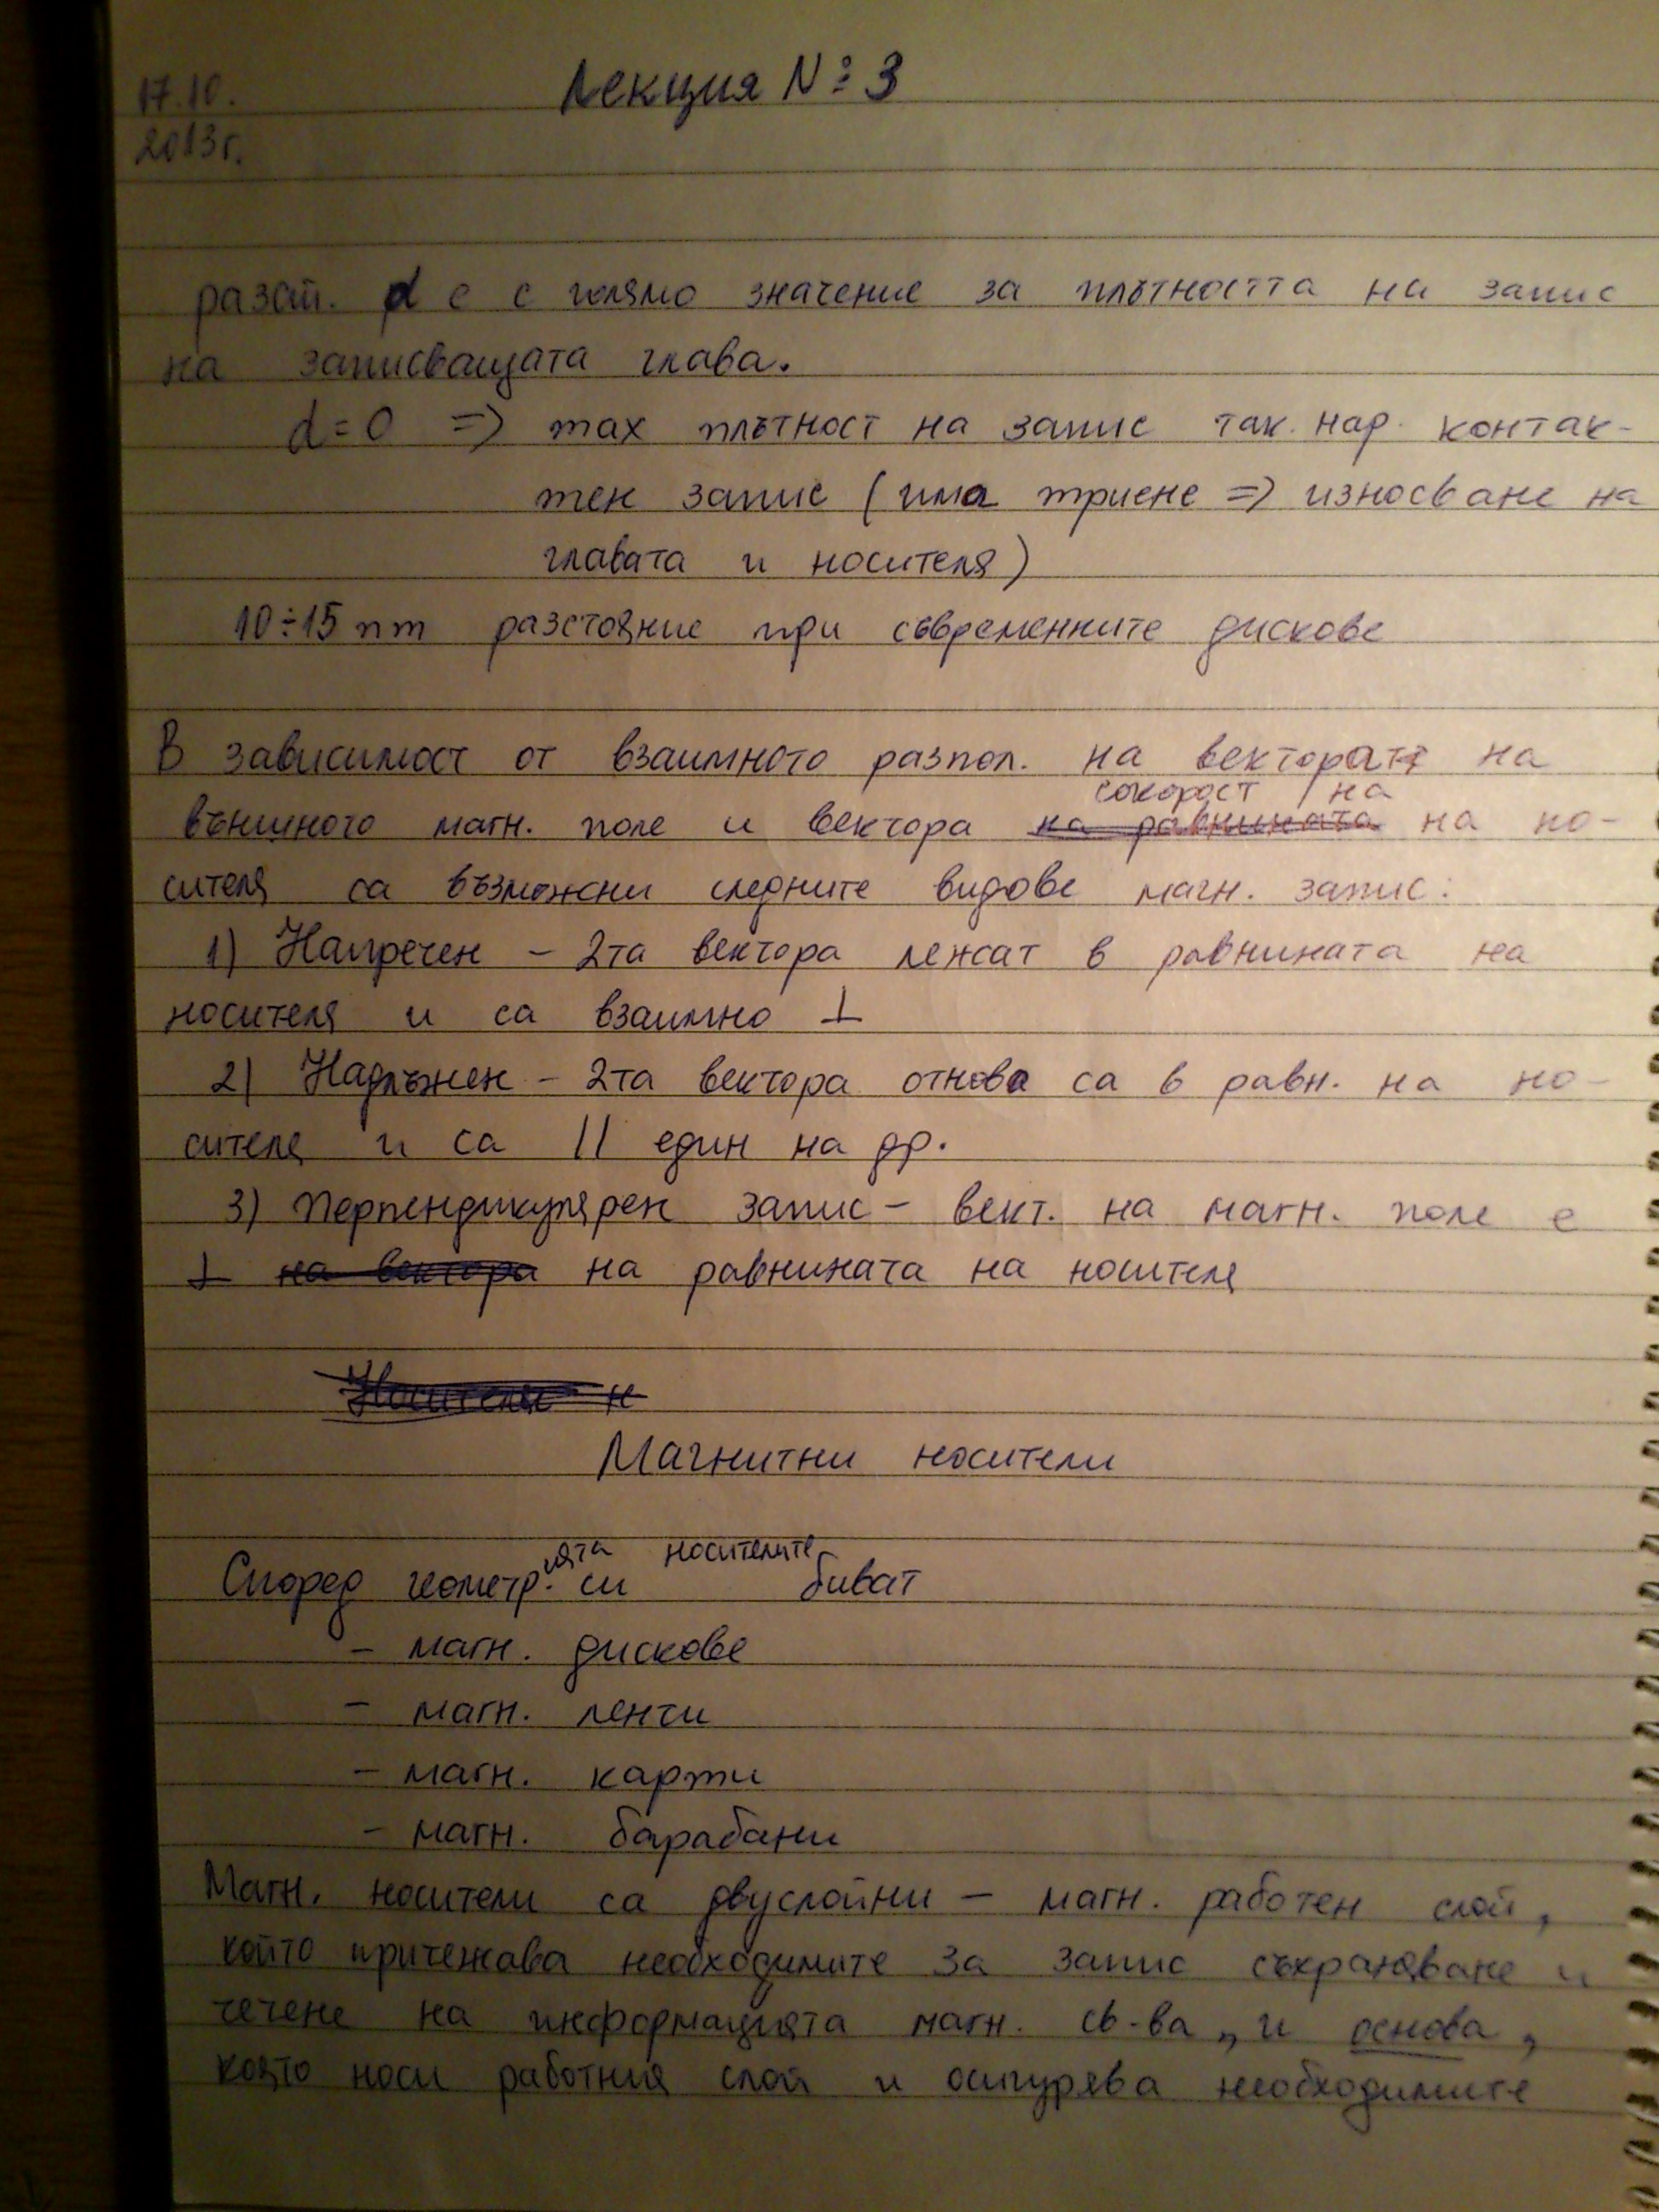 17.10.
2013г.
Лекция №: 3
разст. d е с голямо значение за плътността на запис
на записващата глава.
d=0 => max плътност на запис так. нар. контак-
тен запис (има триене => износване на
главата и носителя)
10÷15 nm разстояние при съвременните дискове
В зависимост от взаимното разпол. на вектора на
скорост на
външното магн. поле и вектора на равнината на но-
сителя са възможни следните видове магн. запис:
1) Напречен - 2та вектора лежат в равнината на
носителя и са взаимно ⊥
2) Надлъжен - 2та вектора отнова са в равн. на но-
сителя и са || един на др.
3) Перпендикулярен запис - вект. на магн. поле е
⊥ на вектора на равнината на носителя
Носители н
Магнитни носители
Според геометр. ията си носителите биват
- магн. дискове
- магн. ленти
- магн. карти
- магн. барабани
Магн. носители са двуслойни - магн. работен слой,
който притежава необходимите за запис съхраняване и
четене на информацията магн. св-ва, и основа,
която носи работния слой и осигурява необходимите